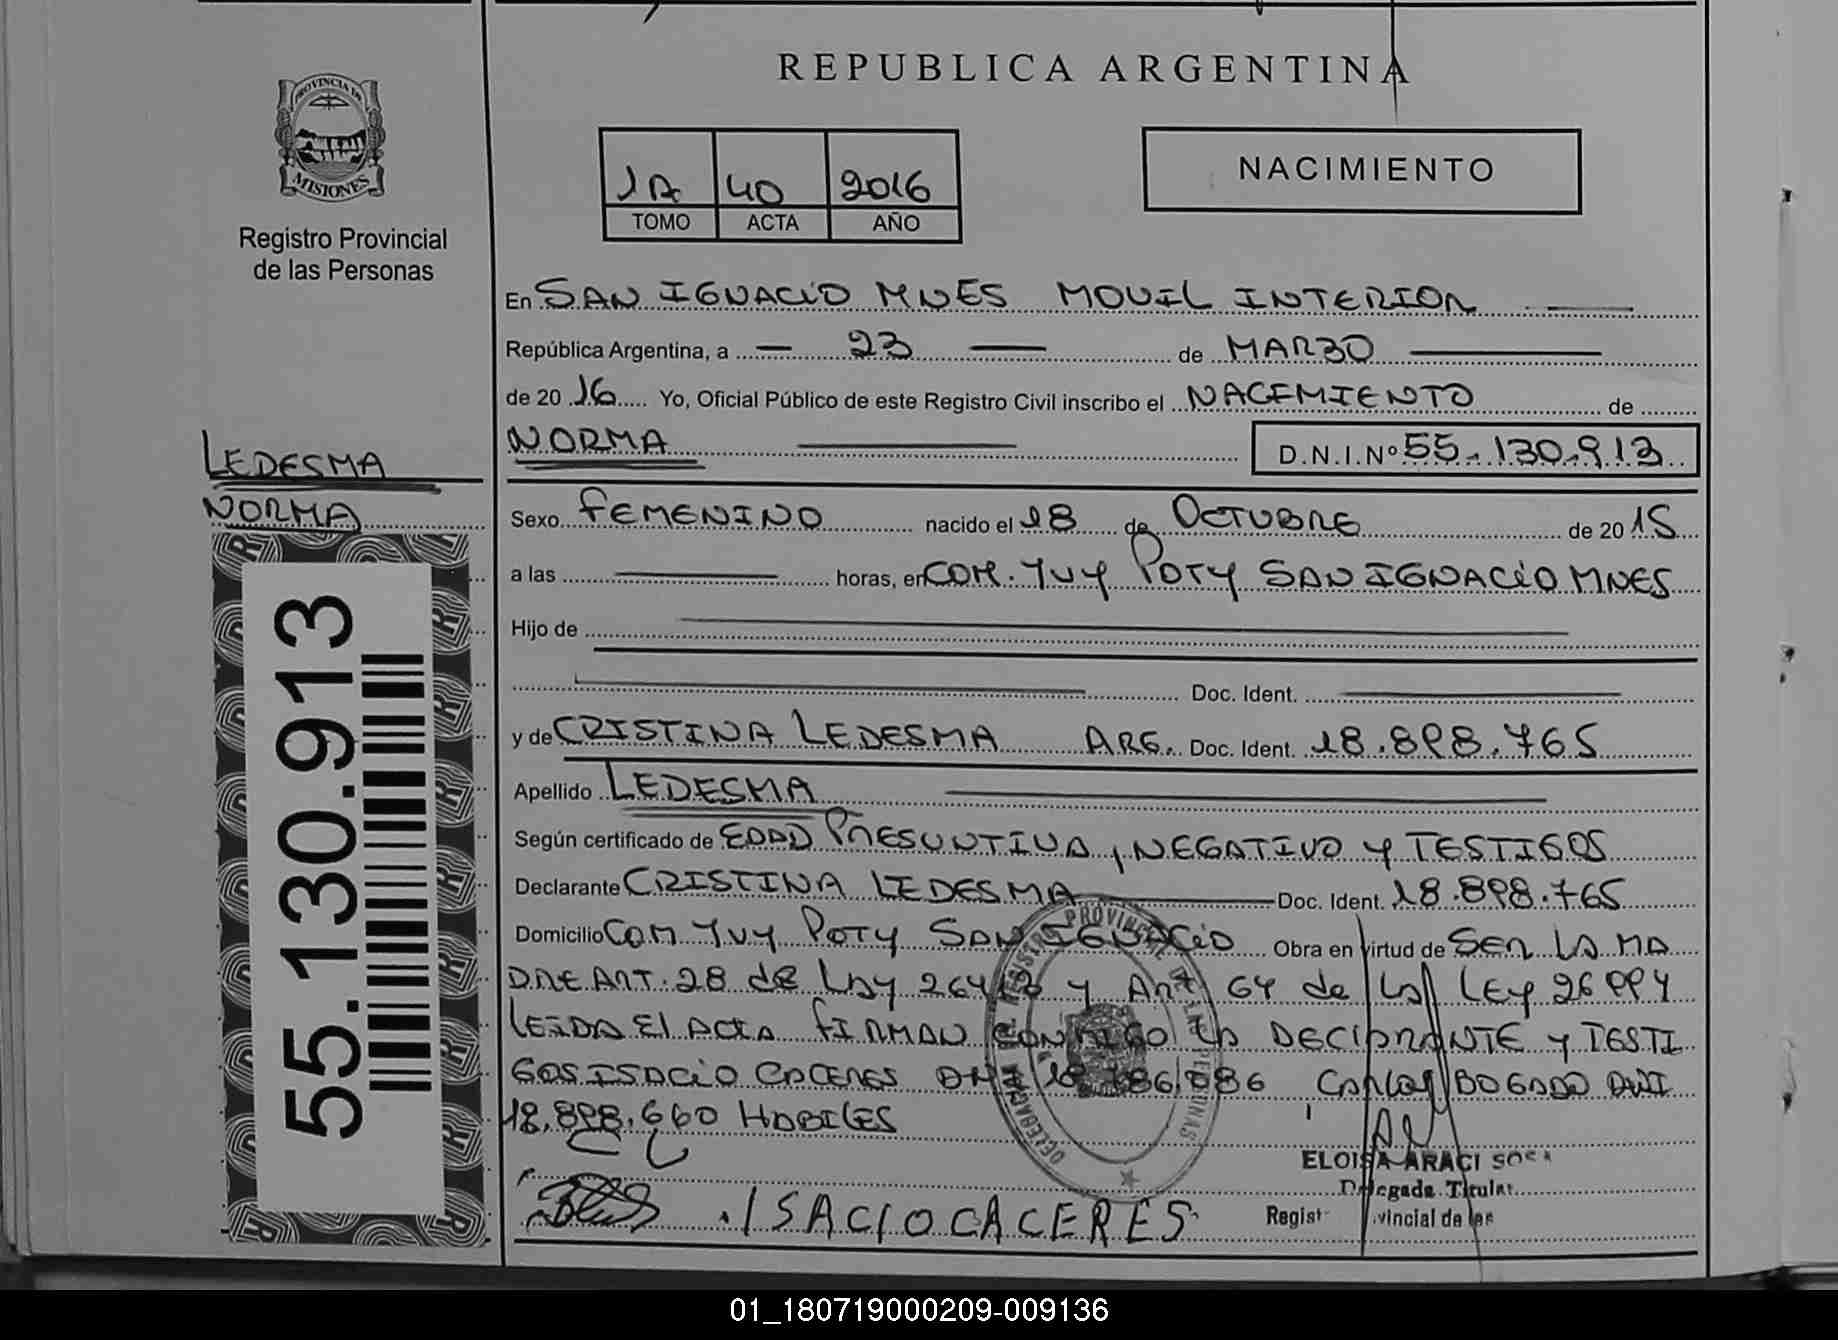 REPUBLICA ARGENTINA
PROVINCIA DE
MISIONES
Registro Provincial
de las Personas
1A 40 2016
TOMO ACTA AÑO
NACIMIENTO
En SAN IGNACIO MNES MOVIL INTERIOR
República Argentina, a 23 de MARZO
de 2016 Yo, Oficial Público de este Registro Civil inscribo el NACIMIENTO de
NORMA D.N.I.Nº 55.130.913
LEDESMA
NORMA
55.130.913
Sexo FEMENINO nacido el 18 de OCTUBRE de 2015
a las horas, en COM. YUY POTY SAN IGNACIO MNES
Hijo de
Doc. Ident.
y de CRISTINA LEDESMA ARG. Doc. Ident. 18.898.765
Apellido LEDESMA
Según certificado de EDAD PRESUNTIVA, NEGATIVO Y TESTIGOS
Declarante CRISTINA LEDESMA Doc. Ident. 18.898.765
Domicilio COM YUY POTY SAN IGNACIO Obra en virtud de SER LA MA
DRE ART. 28 de LAY 26413 y Art 64 de LA LEY 26994
LEIDA El ACTA FIRMAN CONMIGO LA DECLARANTE Y TESTI
GOS ISACIO CACERES DNI CARLOS BOGADO DNI
18.898.660 HABILES
ELOISA ARACI SOSA
Delegada Titular
ISACIO CACERES Regist vincial de las
01_180719000209-009136